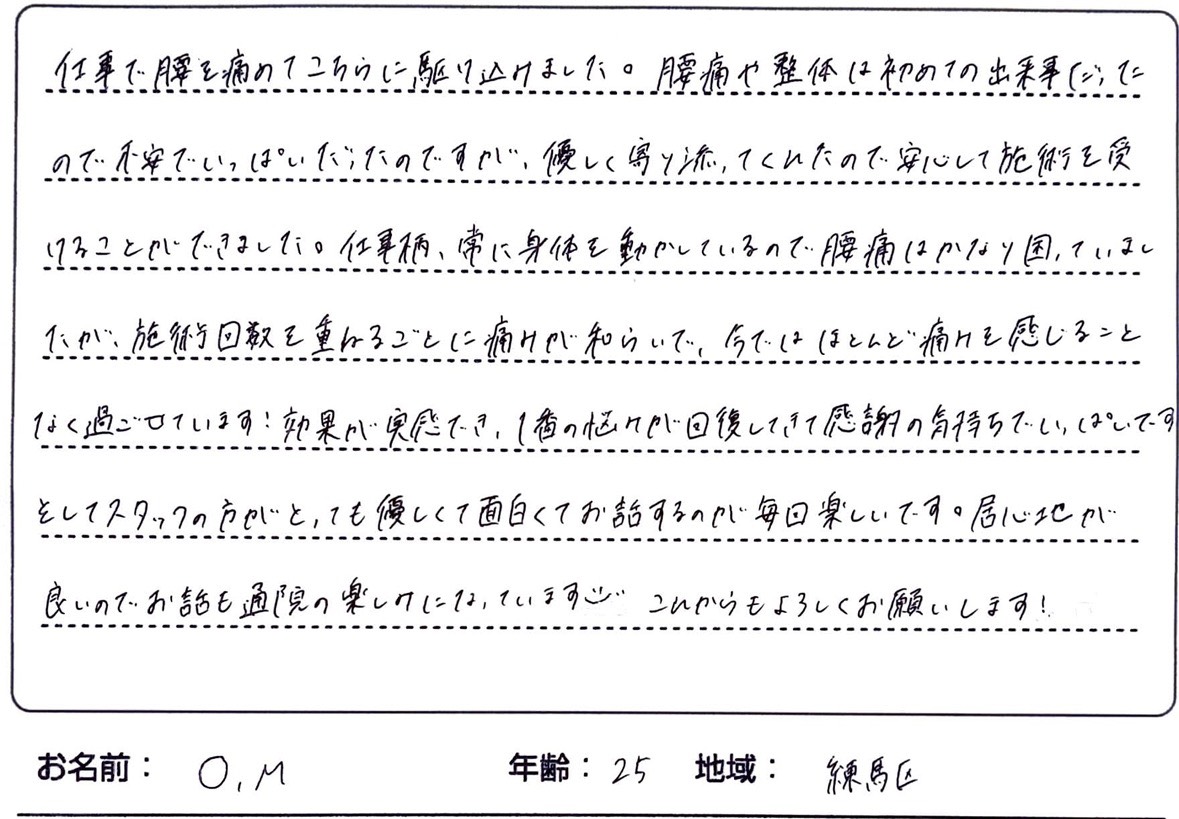 仕事で腰を痛めてこちらに駆け込みました。腰痛や整体は初めての出来事だった
ので不安でいっぱいだったのですが、優しく寄り添ってくれたので安心して施術を受
けることができました。仕事柄、常に身体を動かしているので腰痛はかなり困っていまし
たが、施術回数を重ねるごとに痛みが和らいで、今ではほとんど痛みを感じること
なく過ごせています!効果が実感でき、1番の悩みが回復してきて感謝の気持ちでいっぱいです
そしてスタッフの方がとっても優しくて面白くてお話するのが毎回楽しいです。居心地が
良いのでお話も通院の楽しみになっています これからもよろしくお願いします!
お名前: O.M 年齢: 25 地域: 練馬区